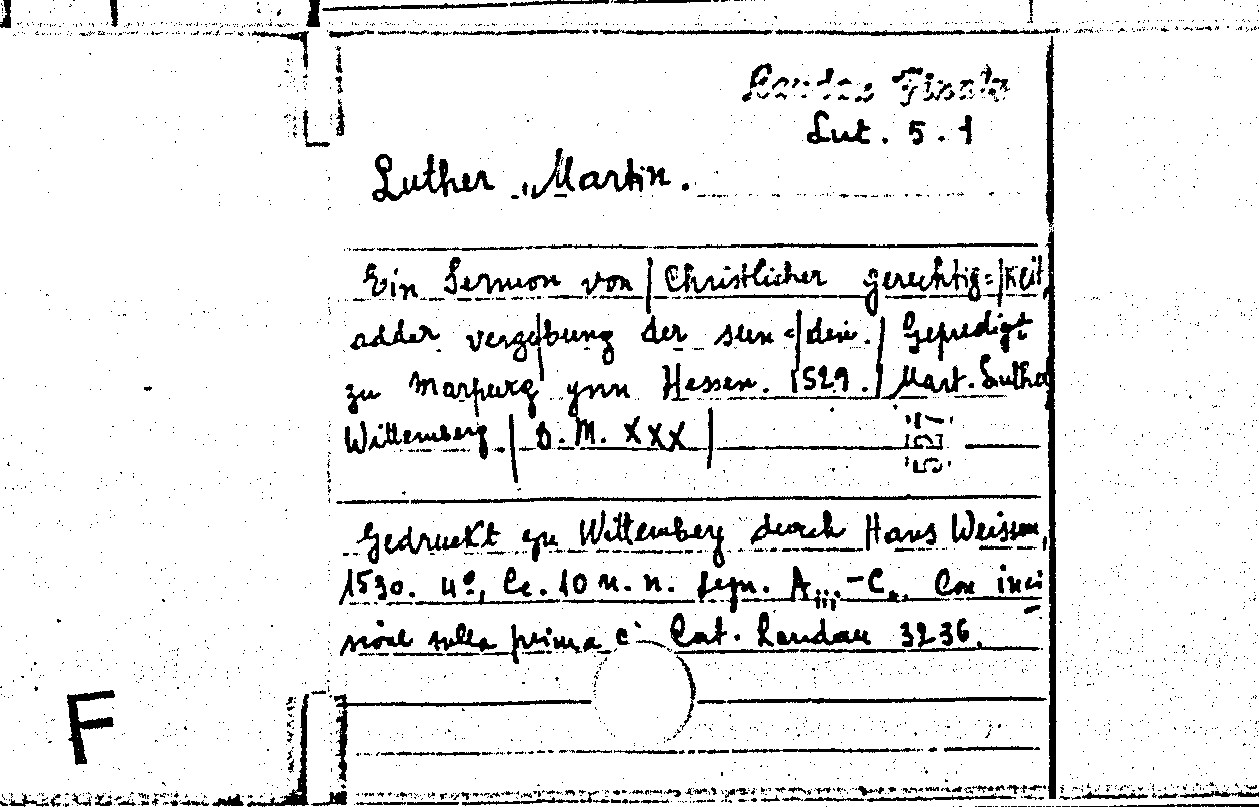 Landau Finaly
Lut. 5. 1
Luther, Martin.
Ein Sermon von | Christlicher gerechtig=|keit,
adder verge|bung der sun=|den. | Gepredigt
zu Marpurg ynn Hessen. 1529. | Mart. Luther
Wittemberg. | D. M. XXX |
Gedruckt zu Wittemberg durch Hans Weissen,
1530. 4º, Cc. 10 n. n. segn. Aiii-C.. Con inci
sione sulla prima c. Cat. Landau 3236.
F